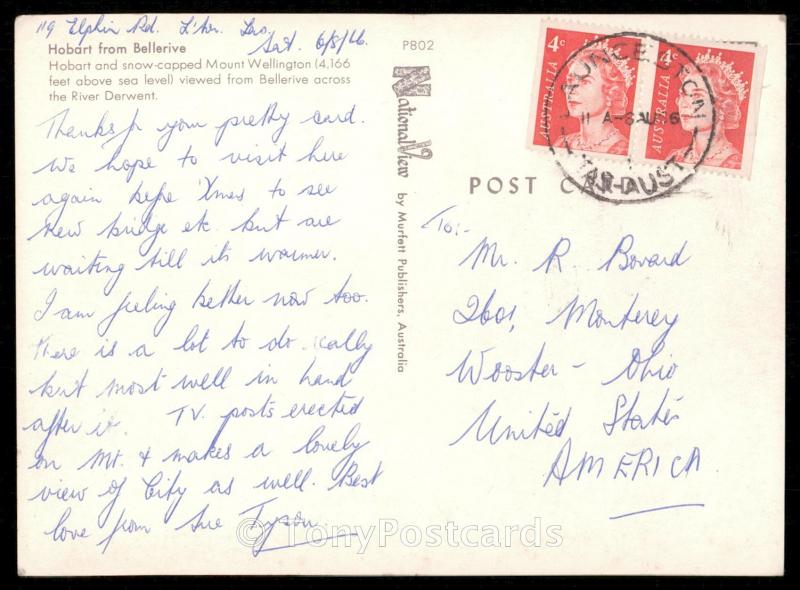 119 Elphin Rd. L'ton. Tas.
Sat. 6/8/66
Hobart from Bellerive
Hobart and snow-capped Mount Wellington (4,166
feet above sea level) viewed from Bellerive across
the River Derwent.
Thanks for your pretty card.
We hope to visit here
again before Xmas to see
new bridge etc. but are
waiting till it's warmer.
I am feeling better now too.
There is a lot to do locally
but most well in hand
after it. T.V. posts erected
on Mt. & makes a lovely
view of City as well. Best
love from Sue Tyson
P802
National View
by Murfett Publishers, Australia
POST CARD
4c
AUSTRALIA
4c
AUSTRALIA
LAUNCESTON
TAS-AUST
To:-
Mr. R. Bovard
2601, Monterey
Wooster - Ohio
United States
AMERICA.
© TonyPostcards